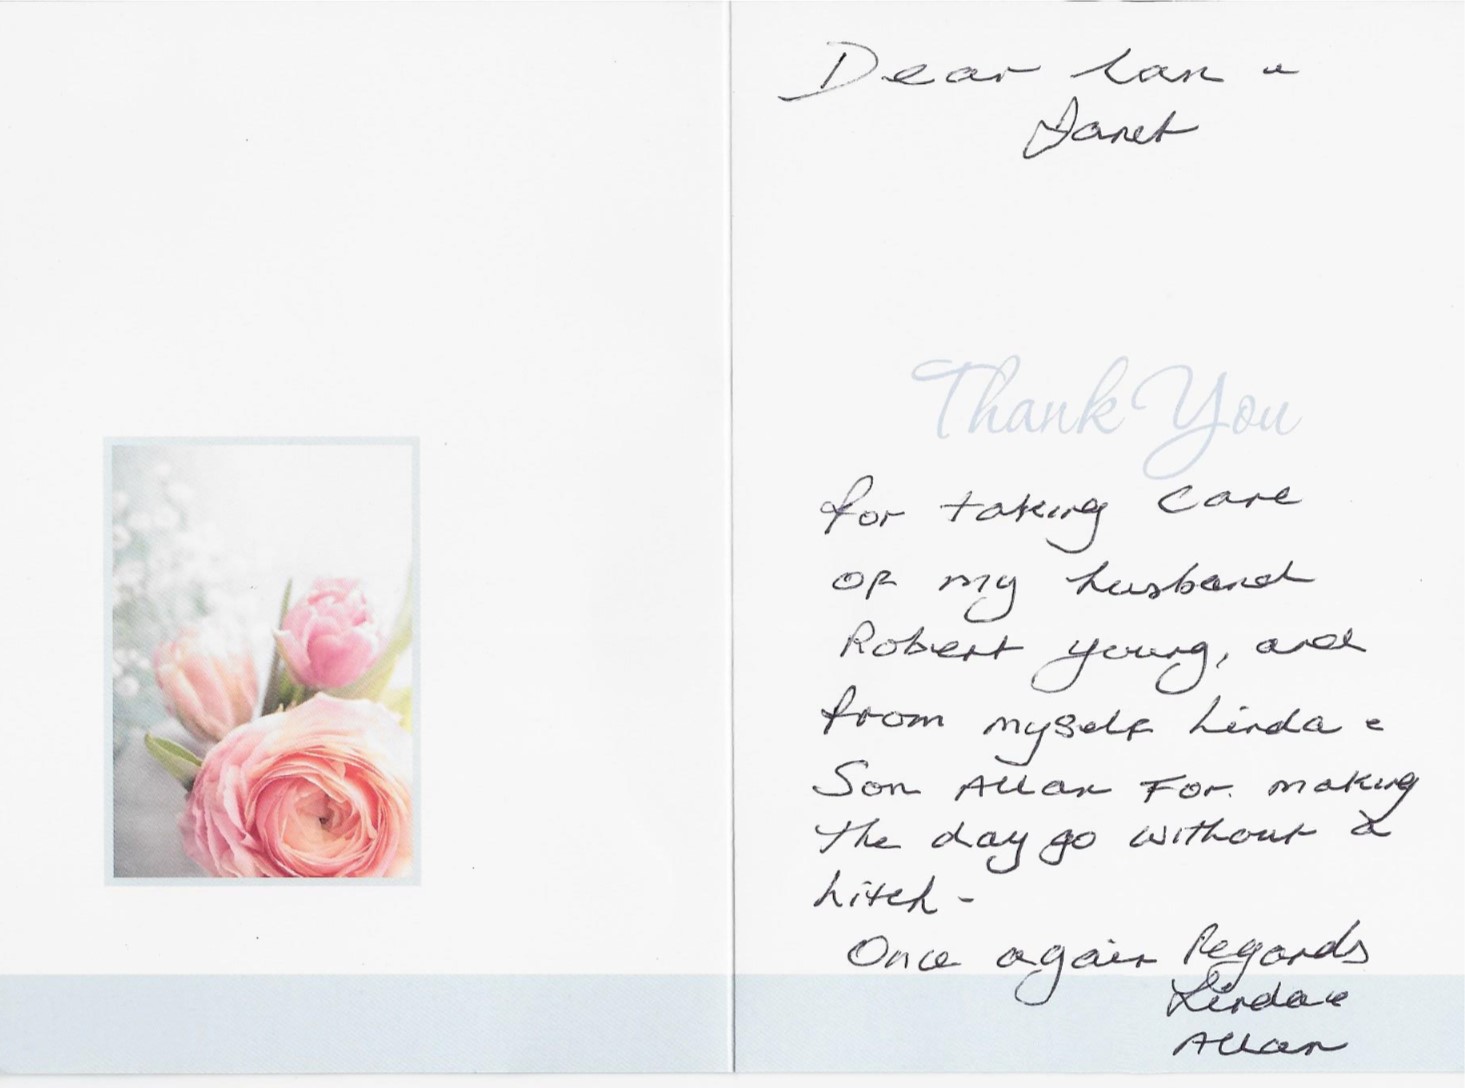 Dear &
Janet
Thank You
for taking care
of my husband
Robert Young, and
from myself Linda &
Son Allan For making
the day go without a
hitch -
Once again Regards
Linda &
Allan